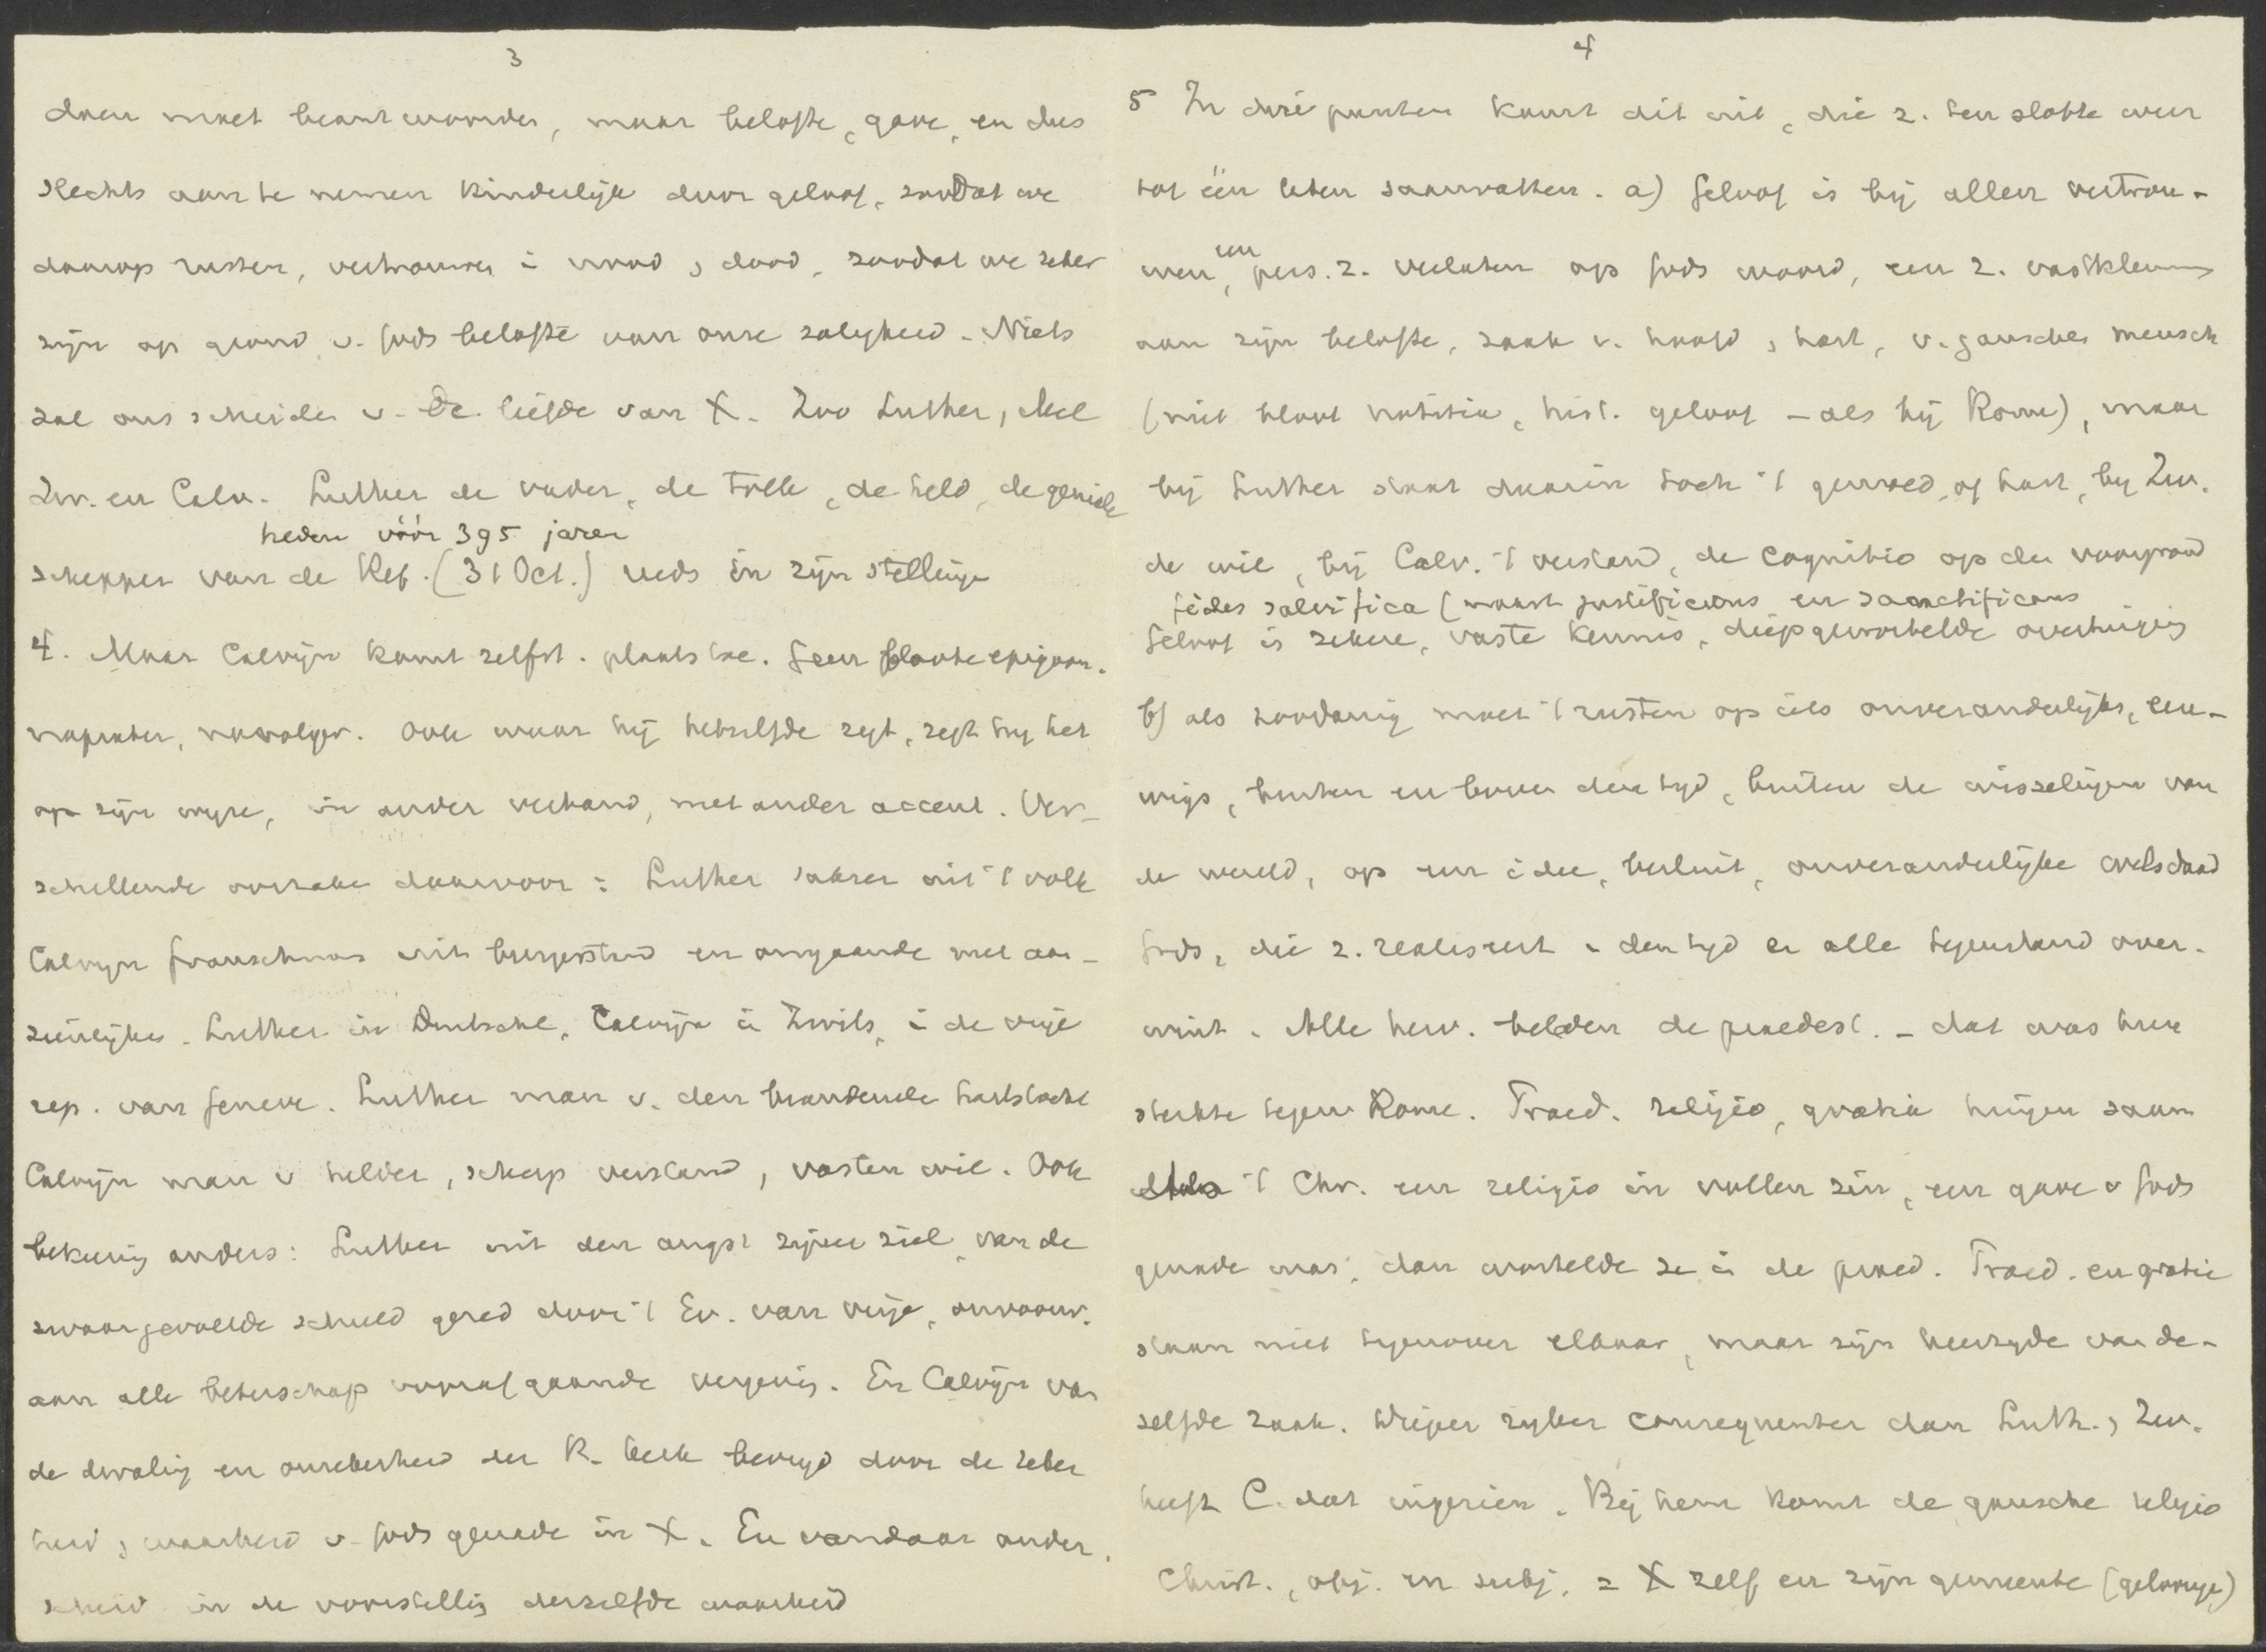 3
doen moet beantwoorden, maar belofte, gave, en dus
slechts aan te nemen kinderlijk door geloof, zoodat we
daarop rusten, vertrouwen i nood , dood, zoodat we zeker
zijn op grond v. Gods belofte van onze zaligheid. Niets
zal ons scheiden v. de liefde van X. Zoo Luther, Mel
Zw. en Calv. Luther de vader, de tolk, de held, de geniale
heden vóór 395 jaren
schepper van de Ref. (31 Oct.) reeds in zijn stellingen
4. Maar Calvijn komt zelfst. plaats toe. Geen bloote epigoon.
naprater, navolger. Ook waar hij hetzelfde zegt, zegt hij het
op zijn wijze, in ander verband, met ander accent. Ver-
schillende oorzaken daarvoor: Luther Sakser uit 't volk
Calvijn Franschman uit burgerstand en omgaande met aan-
zienlijken. Luther in Duitschl, Calvijn in Zwits, i de vrije
rep. van Geneve. Luther man v. den brandende hartstocht
Calvijn man v helder, scherp verstand, vasten wil. Ook
bekeering anders: Luther uit den angst zijner ziel, van de
zwaargevoelde schuld gered door 't Ev. van vrije, onvoorw.
aan alle beterschap voorafgaande vergeving. En Calvijn van
de dwaling en onzekerheid der R. kerk bevrijd door de zeker
heid , waarheid v. Gods genade in X. En vandaar onder.
scheid in de voorstelling derzelfde waarheid
4
5 In drie punten komt dit uit, die z. ten slotte weer
tot één laten saamvatten. a) Geloof is bij allen vertrou-
wen, een pers. z. verlaten op Gods woord, een z. vastklemmen
aan zijn belofte, zaak v. hoofd , hart, v. ganschen mensch
(niet bloot notitia, hist. geloof – als bij Rome), maar
bij Luther staat daarin toch 't gemoed, of hart, bij Zw.
de wil, bij Calv. 't verstand, de cognitio op den voorgrond
fides salvifica (naast justificans en sanctificans
Geloof is zekere, vaste kennis, diepgewortelde overtuiging
b) als zoodanig moet 't rusten op iets onveranderlijks, eeu-
wigs, buiten en boven den tijd, buiten de wisselingen van
de wereld, op een idee, besluit, onveranderlijke wilsdaad
Gods, die z. realiseert i den tijd en alle tegenstand over-
wint. Alle herv. belden de praedest. – dat was hun
sterkte tegen Rome. Praed. religio, gratia hingen saam
Als 't Chr. een religio in vollen zin, een gave v Gods
genade was, dan wortelde ze in de praed. Praed. en gratie
staan niet tegenover elkaar, maar zijn keerzijde van de-
zelfde zaak. Dieper zijker consequenter dan Luth. , Zw.
heeft C. dat ingezien. Bij hem komt de gansche religio
Christ., obj. en subj. = X zelf en zijn gemeente (gelovige)